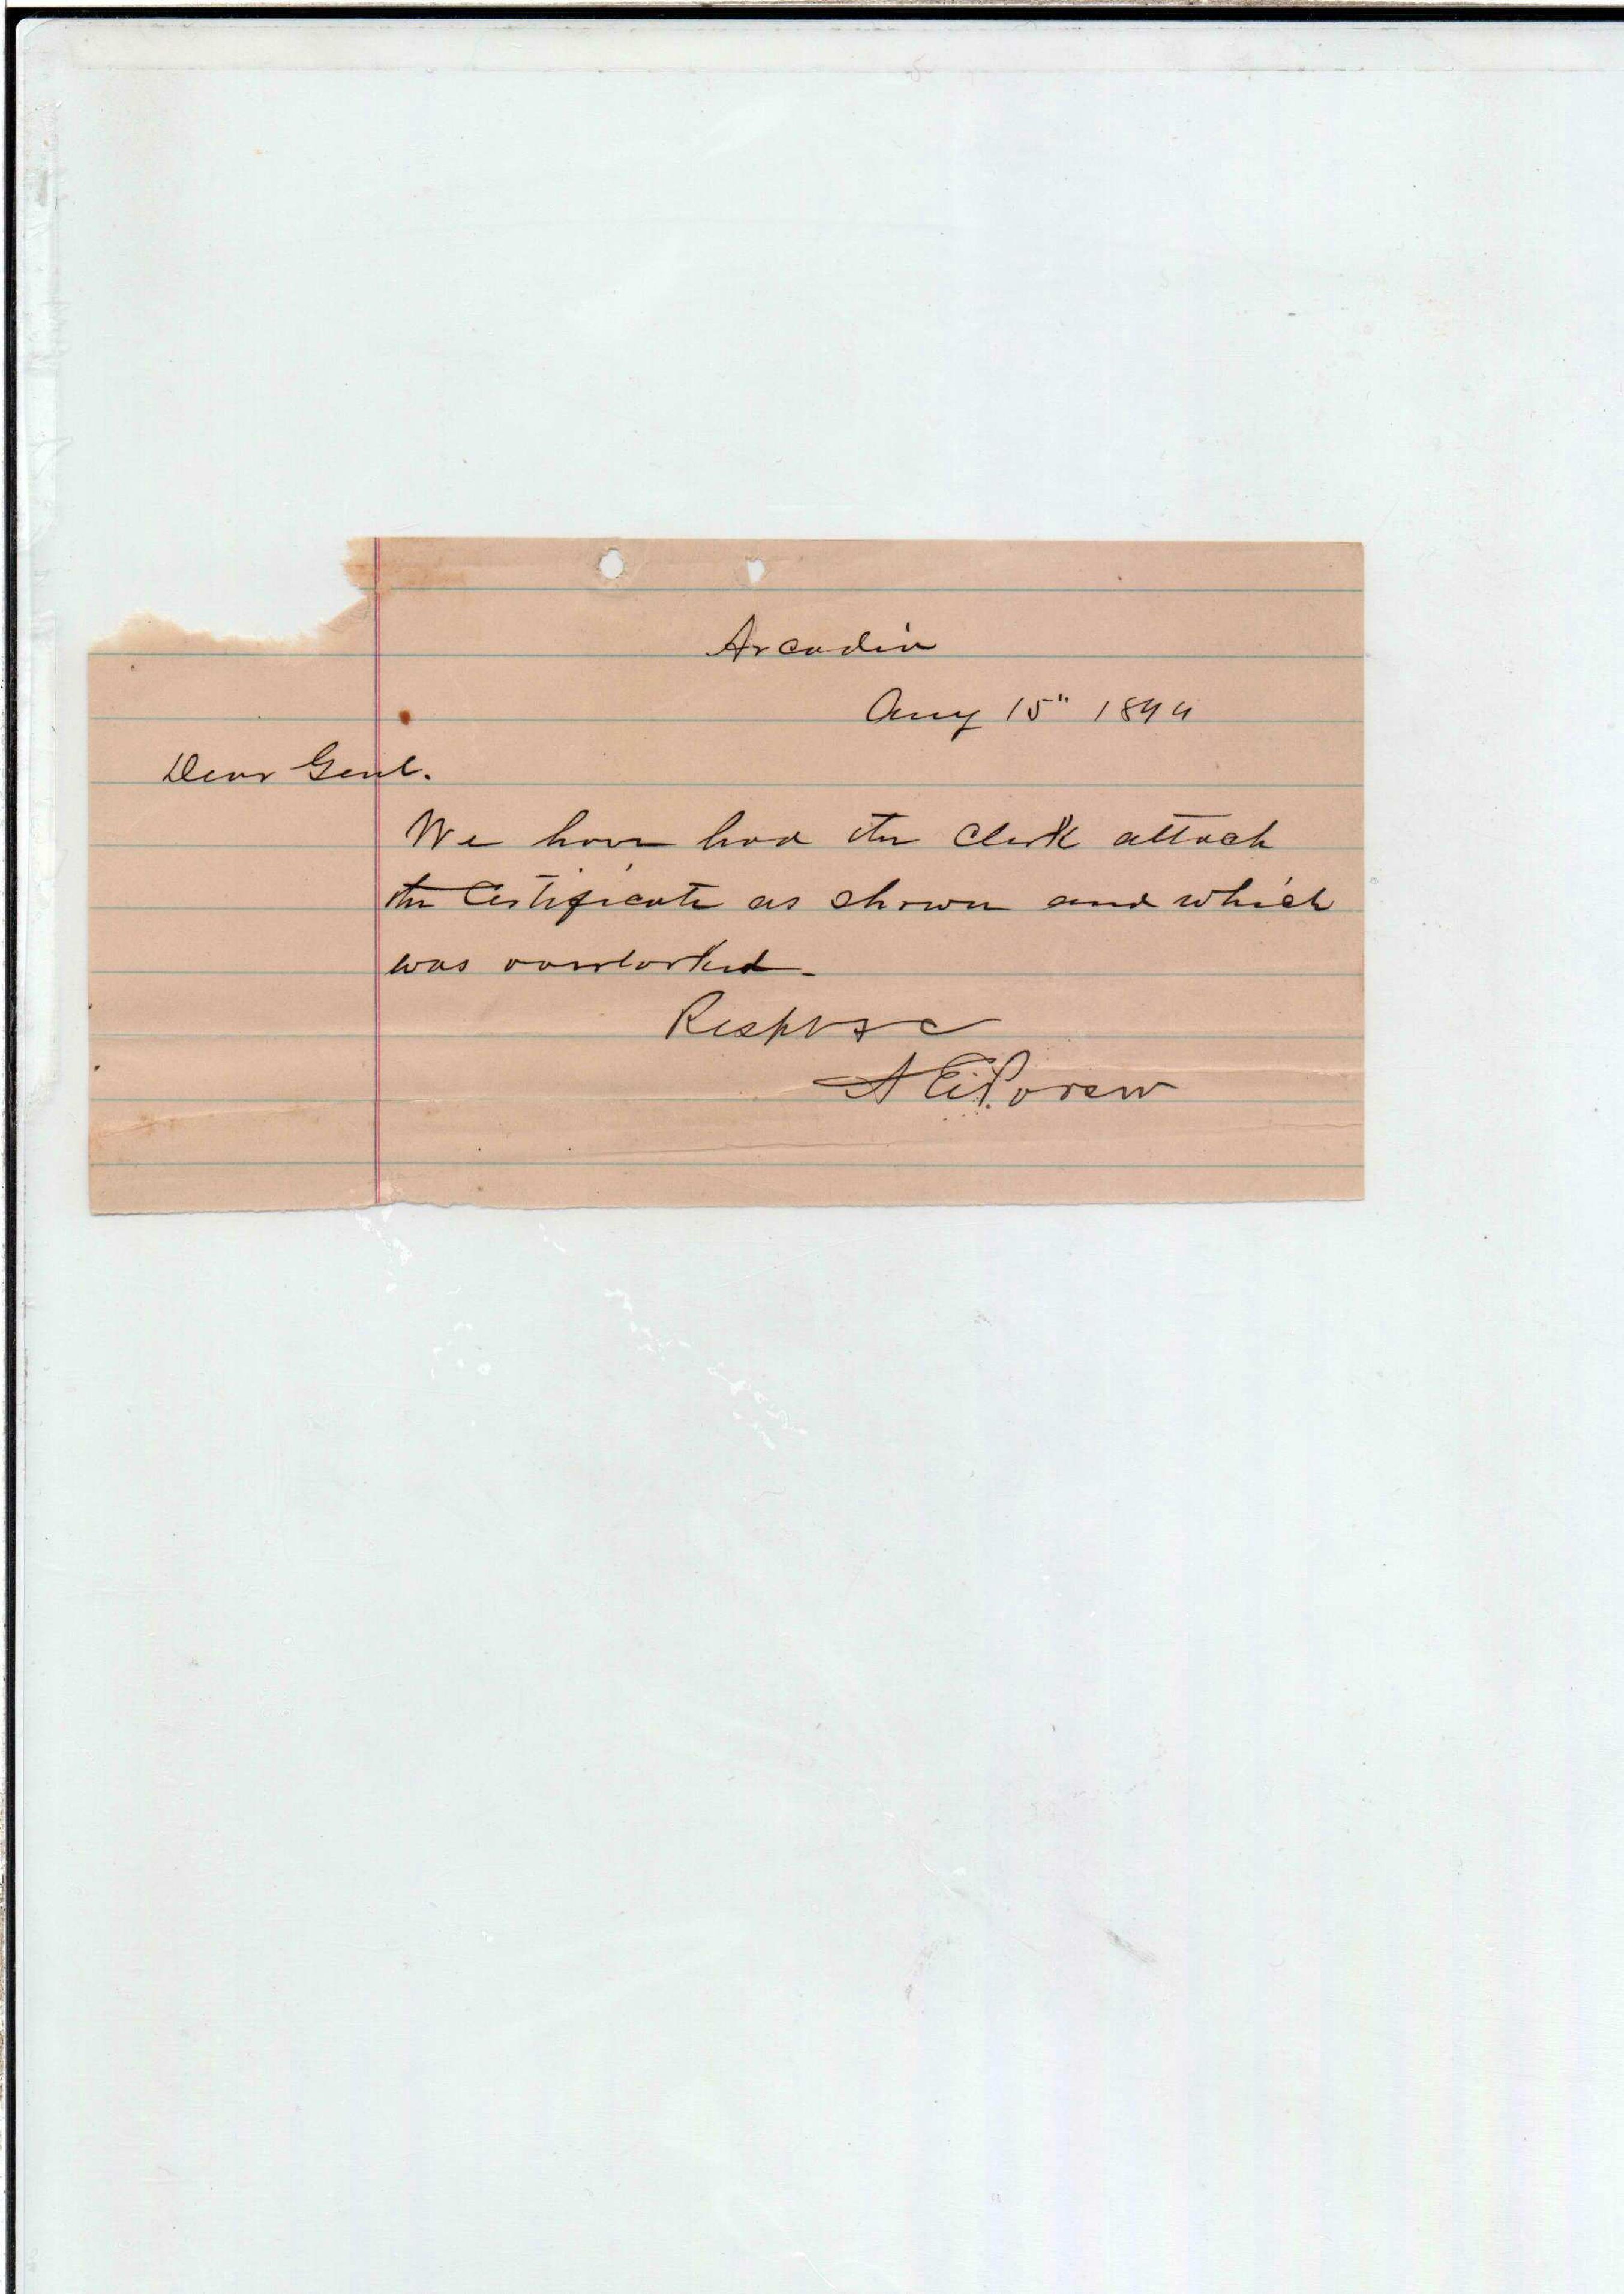 Arcadia
Aug 15" 1894
Dear Genl.
We have had the Clerk attach
the Certificate as shown and which
was overlooked.